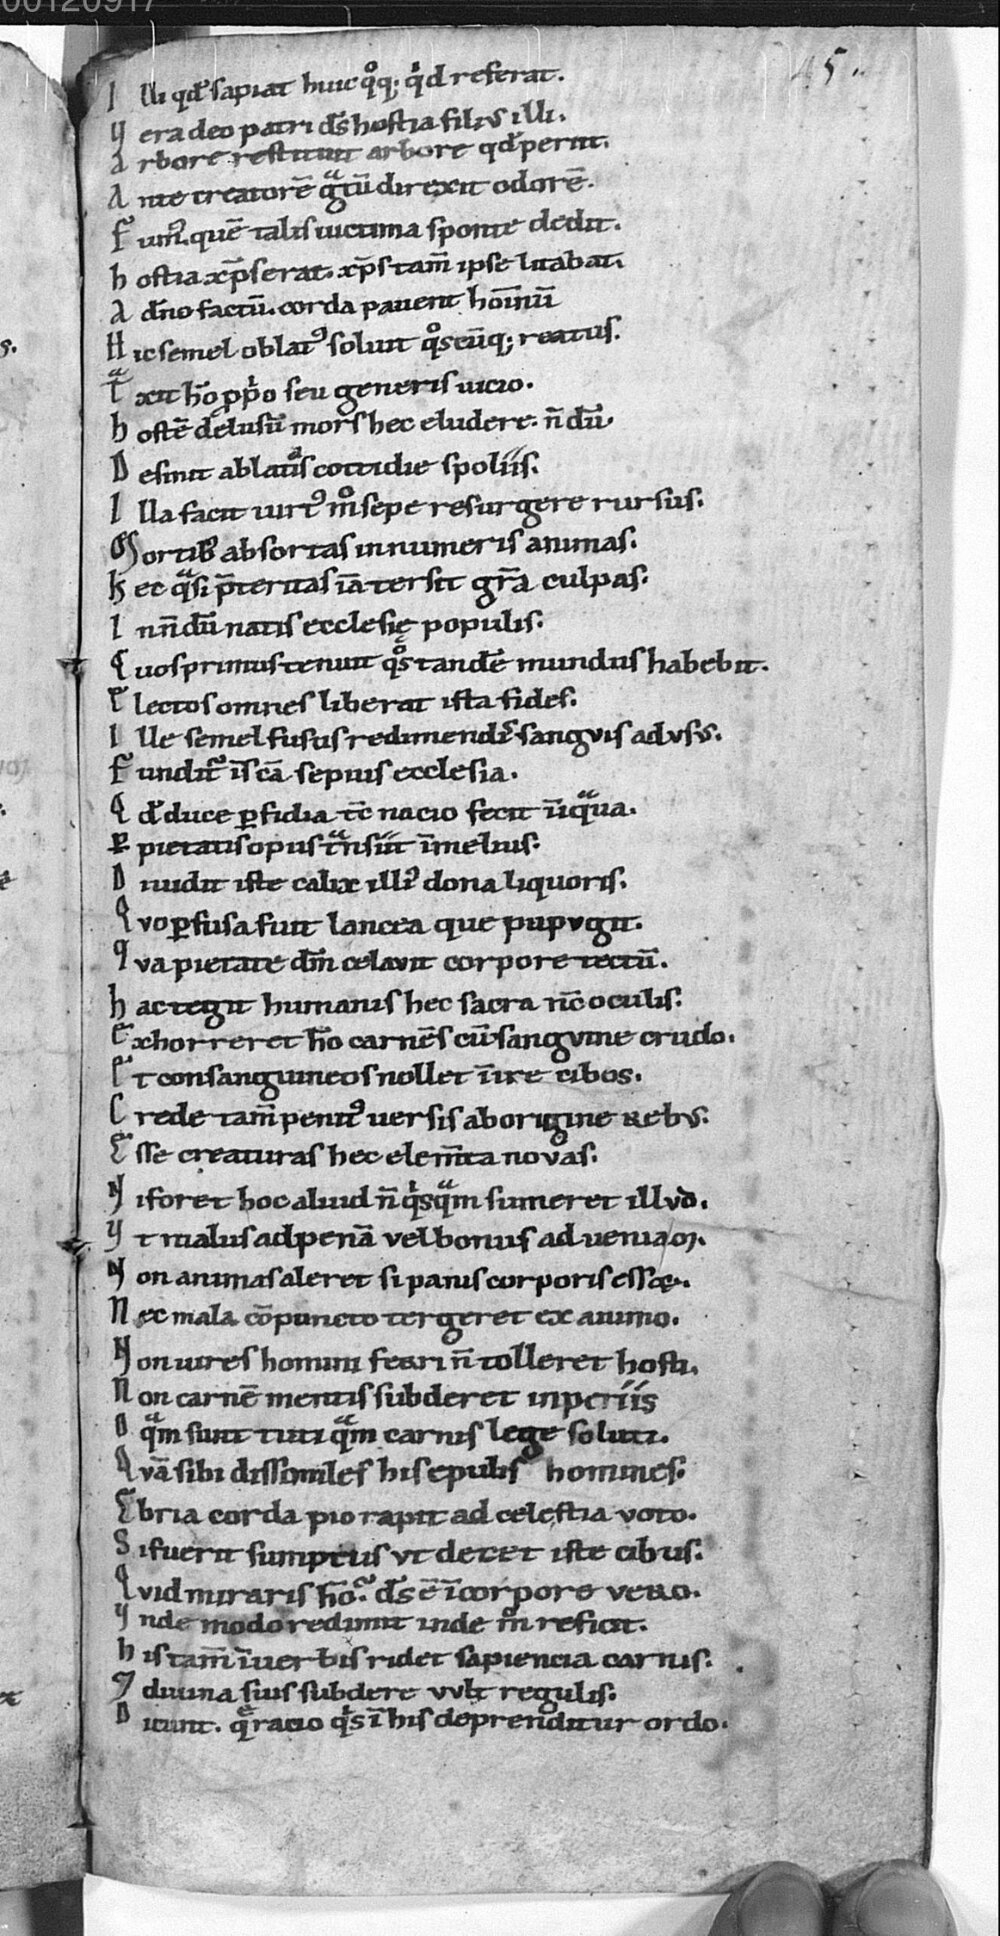 00120917
45.
I lli qđ sapiat huic qͦq; qͥd referat.
V era deo patri d̅s hostia filiꝰ illi.
A rbore restituit arbore qđ periit.
A nte creatorē gͣtū direxit odorē.
F umꝰ. quē talis uictima sponte dedit.
h ostia xp̅s erat. xp̅s tam̅ ipse litabat.
A d̅no factū. corda pauent hoi̅nū
H ic semel oblatꝰ soluit qͦscūq; reatus.
Tͣ xit ho̅ ꝓpͥo seu generis uicio.
h ostē delusū mors hec eludere. n̅dū
D esinit ablatis cottidie spoliis.
I lla facit uirtꝰ mͦ sepe resurgere rursus.
M ortibꝰ absortas innumeris animas.
h ec qͣsi p̅teritas iā tersit gr̅a culpas.
I n n̅dū natis ecclesię populis.
Q uos primus tenuit qͦs tandē mundus habebit.
E lectos omnes liberat ista fides.
I lle semel fusus redimendiˢ sangvis ad vsvs.
F undit᷑ i̅ sc̅a sepius ecclesia.
Q đ duce ꝑfidia tc̅ nacio fecit iniqͣua.
E pietatis opus tͣnsiit i̅ melius.
D iuidit iste calix illiꝰ dona liquoris.
Q vo ꝑfusa fuit lancea que pupvgit.
q va pietate dm̅ celavit corpore tectū.
h ac tegit humanis hec sacra nc̅ oculis.
E xhorreret ho̅ carnēs cū sangvine crudo.
E t consanguineos nollet inire cibos.
C rede tam̅ penitꝰ uersis ab origine rebvs.
E sse creaturas hec elem̅ta novas.
N i foret hoc aliud n̅ qͥsqͣm sumeret illvd.
V t malus ad penā vel bonus ad veniaꝫ.
N on animas aleret si panis corporis essꝫ.
N ec mala cōpuncto tergeret ex animo.
N on uires homini ferri n̅ tolleret hosti.
N on carnē mentis subderet inperiis
O qͣm sunt tuti qͣm carnis lege soluti.
Q vā sibi dissimiles his epulis homines.
E bria corda pio rapit ad celestia voto.
S i fuerit sumptus vt decet iste cibus.
Q vid miraris ho̅. d̅s ē i̅ corpore vero.
V nde modo redimit inde mͦ reficit.
h is tam̅ i̅ verbis ridet sapiencia carnis.
⁊ diuina suis subdere vvlt regulis.
D icunt. qͣ racio qͥs i̅ his deprenditur ordo.